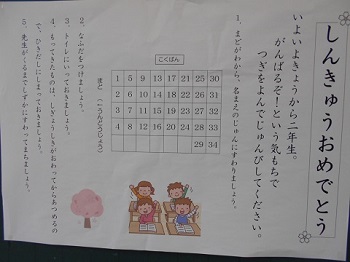 しんきゅうおめでとう
いよいよきょうから二年生。
がんばるぞ！という気もちで
つぎをよんでじゅんびしてください。
1、まどがわから、名まえのじゅんにすわりましょう。
こくばん
1 5 9 13 17 21 25 30
2 6 10 14 18 22 26 31
3 7 11 15 19 23 27 32
4 8 12 16 20 24 28 33
29 34
まど（うんどうじょう）
2、なふだをつけましょう。
3、トイレにいっておきましょう。
4、もってきたものは、しぎょうしきがおわってからあつめるの
で、ひきだしにしまっておきましょう。
5、先生がくるまでしずかにすわってまちましょう。